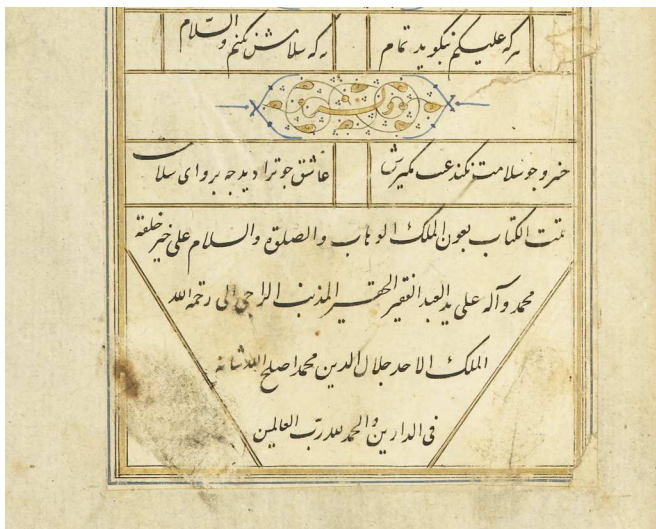 هر که علیکم نکوید تمام که سلامش نکنم والسّلام
وله
خسرو جو سلامت نکند عیب مکیرش عاشق جو ترا دید جه پروای سلام
تمت الکتاب بعون الملک الوهاب والصلوة والسلام علی خیر خلقه
محمد وآله علی ید العبد الفقیر الحقیر المذنب الراجی الی رحمة الله
الملک الاحد جلال الدین محمد اصلح الله شانه
فی الدارین والحمد لله ربّ العالمین